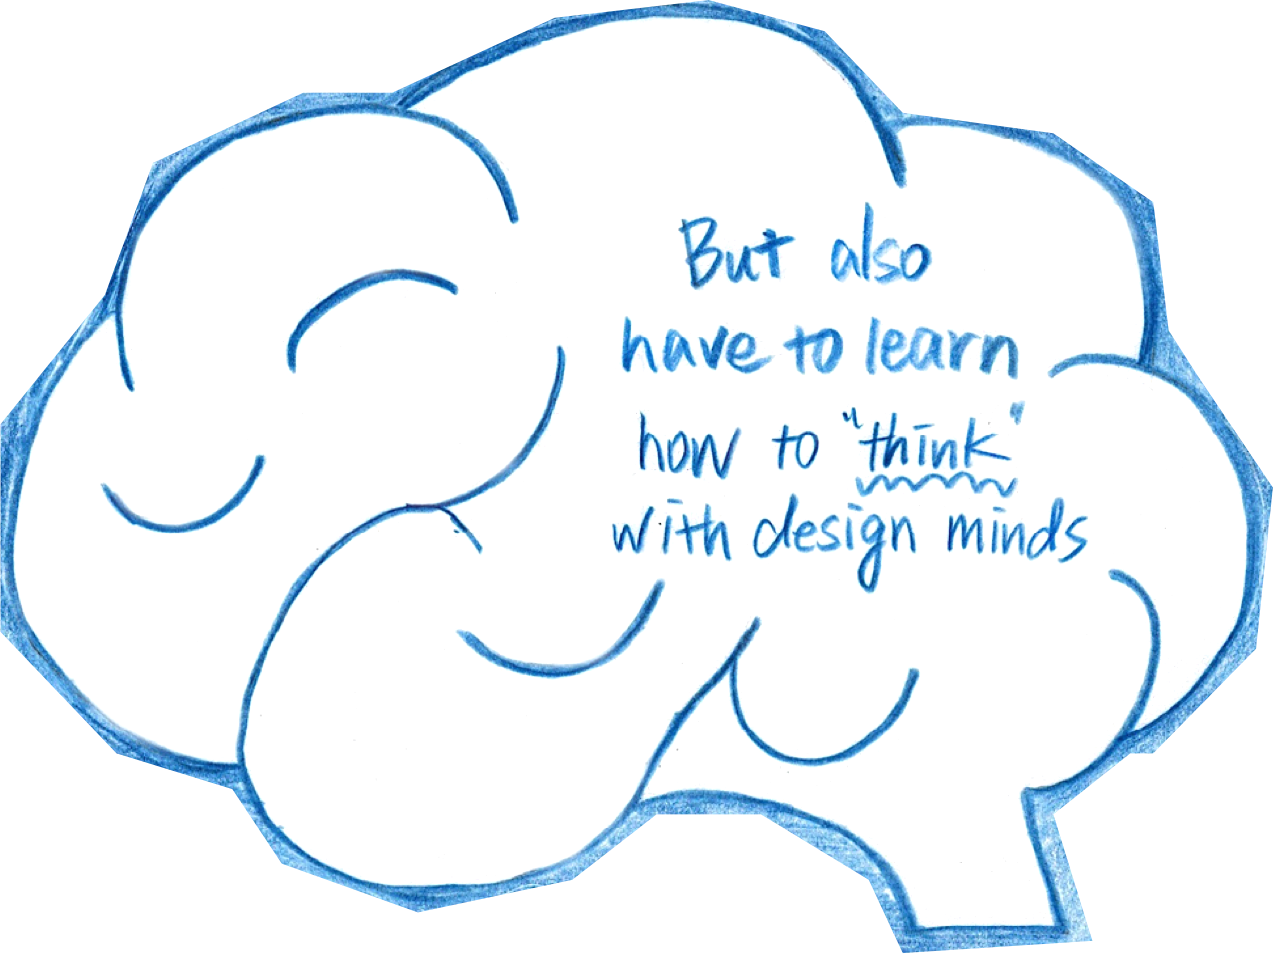 But also
have to learn
how to "think"
with design minds